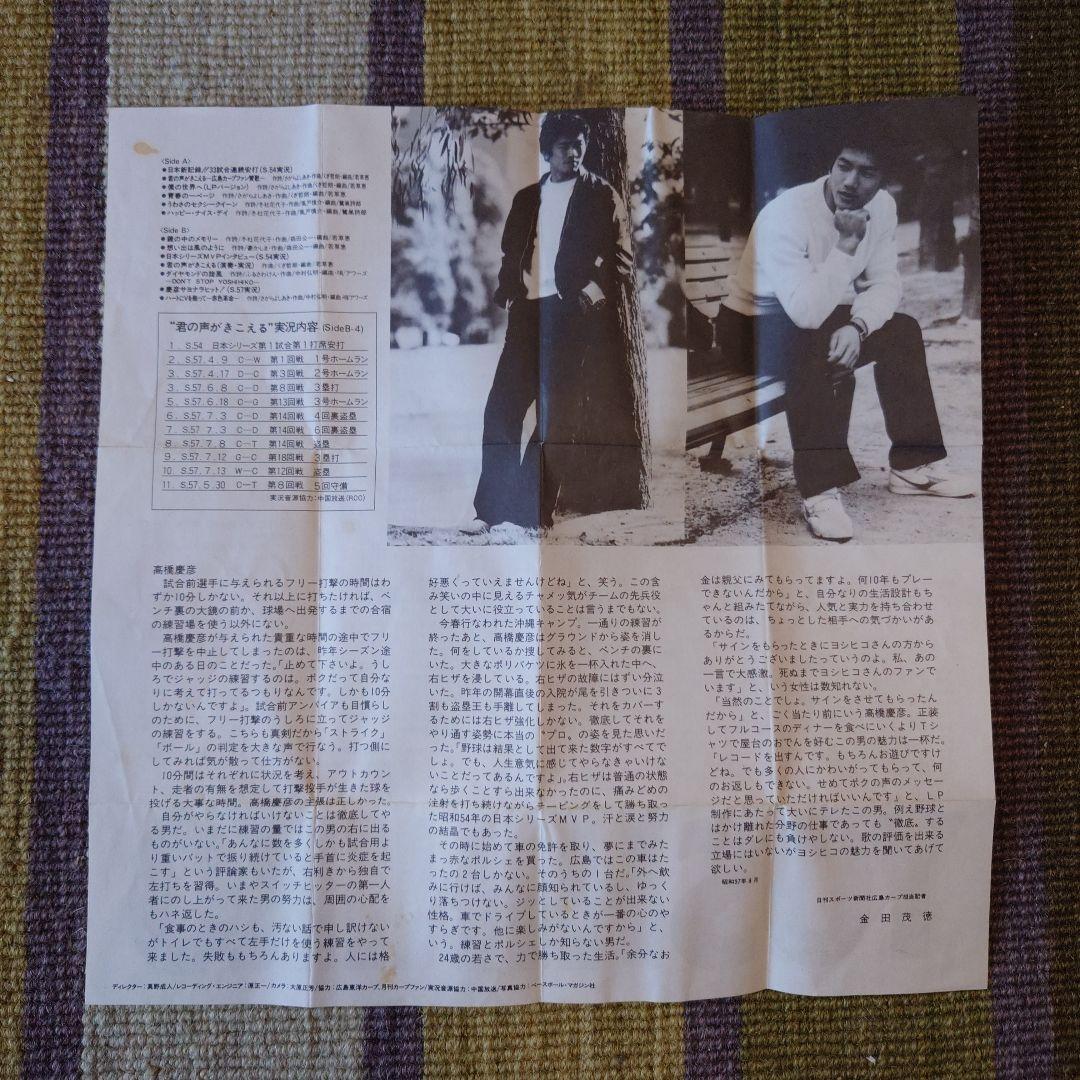 〈Side A〉
●日本新記録!!"33試合連続安打(S.54実況)
●君の声がきこえる―広島カープファン賛歌― 作詩/さがらよしあき・作曲/くぎ哲朗・編曲/若草恵
●僕の世界へ(LPバージョン) 作詩/さがらよしあき・作曲/くぎ哲朗・編曲/若草恵
●青春の一ページ 作詩/さがらよしあき・作曲/くぎ哲朗・編曲/若草恵
●うわさのセクシークイーン 作詩/冬杜花代子・作曲/風戸慎介・編曲/鷺巣詩郎
●ハッピー・ナイス・デイ 作詩/冬杜花代子・作曲/風戸慎介・編曲/鷺巣詩郎
〈Side B〉
●鏡の中のメモリー 作詩/冬杜花代子・作曲/森田公一・編曲/若草恵
●想い出は風のように 作曲/森田公一・編曲/若草恵
●日本シリーズMVPインタビュー(S.54実況)
●君の声がきこえる(演奏・実況) 作曲/くぎ哲朗・編曲/若草恵
●ダイヤモンドの旋風 作詩/ふるさわけん・作曲/中村弘明・編曲/竜アワーズ
―DON'T STOP YOSHIHIKO―
●慶彦サヨナラヒット!(S.57実況)
●ハートにVを飾って―赤色革命― 作詩/さがらよしあき・作曲/中村弘明・編曲/竜アワーズ
"君の声がきこえる"実況内容(SideB-4)
1. S.54 日本シリーズ第1試合第1打席安打
2. S.57.4.9 C―W 第1回戦 1号ホームラン
3. S.57.4.17 D―C 第3回戦 2号ホームラン
3. S.57.6.8 C―D 第8回戦 3塁打
5. S.57.6.18 C―G 第13回戦 3号ホームラン
6. S.57.7.3 C―D 第14回戦 4回裏盗塁
7. S.57 7.3 C―D 第14回戦 6回裏盗塁
8. S.57.7.8 C―T 第14回戦 盗塁
9. S.57.7.12 G―C 第18回戦 3塁打
10. S.57.7.13 W―C 第12回戦 盗塁
11. S.57.5.30 C―T 第8回戦 5回守備
実況音源協力:中国放送(RCC)
高橋慶彦
試合前選手に与えられるフリー打撃の時間はわ
ずか10分しかない。それ以上に打ちたければ、ベ
ンチ裏の大鏡の前か、球場へ出発するまでの合宿
の練習場を使う以外にない。
高橋慶彦が与えられた貴重な時間の途中でフリ
ー打撃を中止してしまったのは、昨年シーズン途
中のある日のことだった。「止めて下さいよ。うし
ろでジャッジの練習するのは。ボクだって自分な
りに考えて打ってるつもりなんです。しかも10分
しかないんですよ」。試合前アンパイアも目慣らし
のために、フリー打撃のうしろに立ってジャッジ
の練習をする。こちらも真剣だから「ストライク」
「ボール」の判定を大きな声で行なう。打つ側に
してみれば気が散って仕方がない。
10分間はそれぞれに状況を考え、アウトカウン
ト、走者の有無を想定して打撃投手が生きた球を
投げる大事な時間。高橋慶彦の主張は正しかった。
自分がやらなければいけないことは徹底してや
る男だ。いまだに練習の量ではこの男の右に出る
ものがいない。「あんなに数を多くしかも試合用よ
り重いバットで振り続けていると手首に炎症を起
こす」という評論家もいたが、右利きから独自で
左打ちを習得。いまやスイッチヒッターの第一人
者にのし上がって来た男の努力は、周囲の心配を
もハネ返した。
「食事のときのハシも、汚ない話で申し訳けない
がトイレでもすべて左手だけを使う練習をやって
来ました。失敗ももちろんありますよ。人には格
好悪くっていえませんけどね」と、笑う。この含
み笑いの中に見えるチャメッ気がチームの先兵役
として大いに役立っていることは言うまでもない。
今春行なわれた沖縄キャンプ。一通りの練習が
終ったあと、高橋慶彦はグラウンドから姿を消し
た。何をしているか捜してみると、ベンチの裏に
いた。大きなポリバケツに氷を一杯入れた中へ、
右ヒザを浸している。右ヒザの故障にはずい分泣
いた。昨年の開幕直後の入院が尾を引きついに3
割も盗塁王も手離してしまった。それをカバーす
るためには右ヒザ強化しかない。徹底してそれを
やり通す姿勢に本当の〝プロ〟の姿を見た思いだ
った。「野球は結果として出て来た数字がすべてで
しょ。でも、人生意気に感じてやらなきゃいけな
いことだってあるんですよ」。右ヒザは普通の状態
なら歩くことすら出来なかったのに、痛みどめの
注射を打ち続けながらテーピングをして勝ち取っ
た昭和54年の日本シリーズMVP。汗と涙と努力
の結晶でもあった。
その時に始めて車の免許を取り、夢にまでみた
まっ赤なポルシェを買った。広島ではこの車はた
ったの2台しかない。そのうちの1台だ。「外へ飲
みに行けば、みんなに顔知られているし、ゆっく
り落ちつけない。ジッとしていることが出来ない
性格。車でドライブしているときが一番の心のや
すらぎです。他に楽しみがないんですから」と、
いう。練習とポルシェしか知らない男だ。
24歳の若さで、力で勝ち取った生活。「余分なお
金は親父にみてもらってますよ。何10年もプレー
できないんだから」と、自分なりの生活設計もち
ゃんと組みたてながら、人気と実力を持ち合わせ
ているのは、ちょっとした相手への気づかいがあ
るからだ。
「サインをもらったときにヨシヒコさんの方から
ありがとうございましたっていうのよ。私、あの
一言で大感激。死ぬまでヨシヒコさんのファンで
います」と、いう女性は数知れない。
「当然のことでしょ。サインをさせてもらったん
だから」と、ごく当たり前にいう高橋慶彦。正装
してフルコースのディナーを食べにいくよりTシ
ャツで屋台のおでんを好むこの男の魅力は一杯だ。
「レコードを出すんです。もちろんお遊びですけ
どね。でも多くの人にかわいがってもらって、何
のお返しもできない。せめてボクの声のメッセー
ジだと思っていただければいいんです」と、LP
制作にあたって大いにテレたこの男。例え野球と
はかけ離れた分野の仕事であっても〝徹底〟する
ことはダレにも負けやしない。歌の評価を出来る
立場にはいないがヨシヒコの魅力を聞いてあげて
欲しい。
昭和57年8月
日刊スポーツ新聞社広島カープ担当記者
金田茂徳
ディレクター:真野成人/レコーディング・エンジニア:原正一/カメラ:大原正芳/協力:広島東洋カープ、月刊カープファン/実況音源協力:中国放送/写真協力:ベースボール・マガジン社